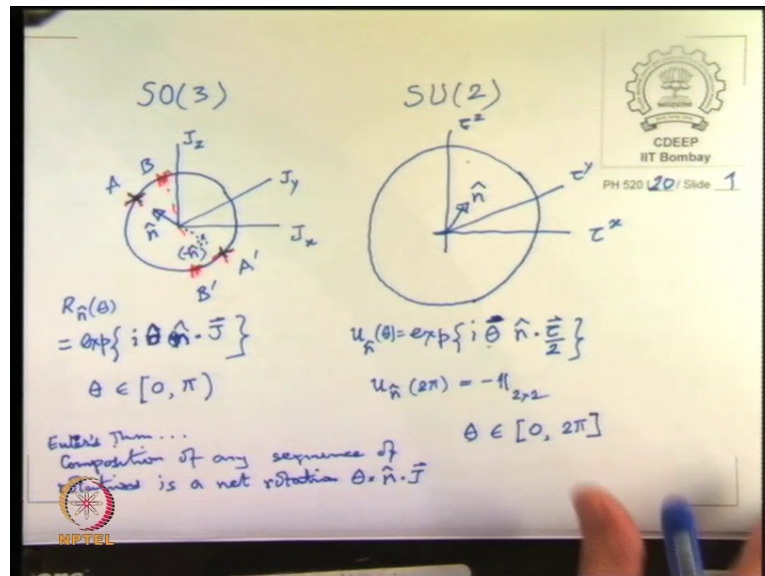 SO(3)
SU(2)
CDEEP
IIT Bombay
PH 520 L 20 / Slide 1
J_z
J_y
J_x
B
A
n̂
(-n̂)
A'
B'
τ^z
τ^y
τ^x
n̂
R_n̂(θ)
= exp{ i θ n̂ · J⃗ }
θ ∈ [0, π)
U_n̂(θ) = exp{ i θ n̂ · τ⃗/2 }
U_n̂(2π) = -𝟙_2×2
θ ∈ [0, 2π]
Euler's Thm...
Composition of any sequence of
rotations is a net rotation θ × n̂ · J⃗
NPTEL